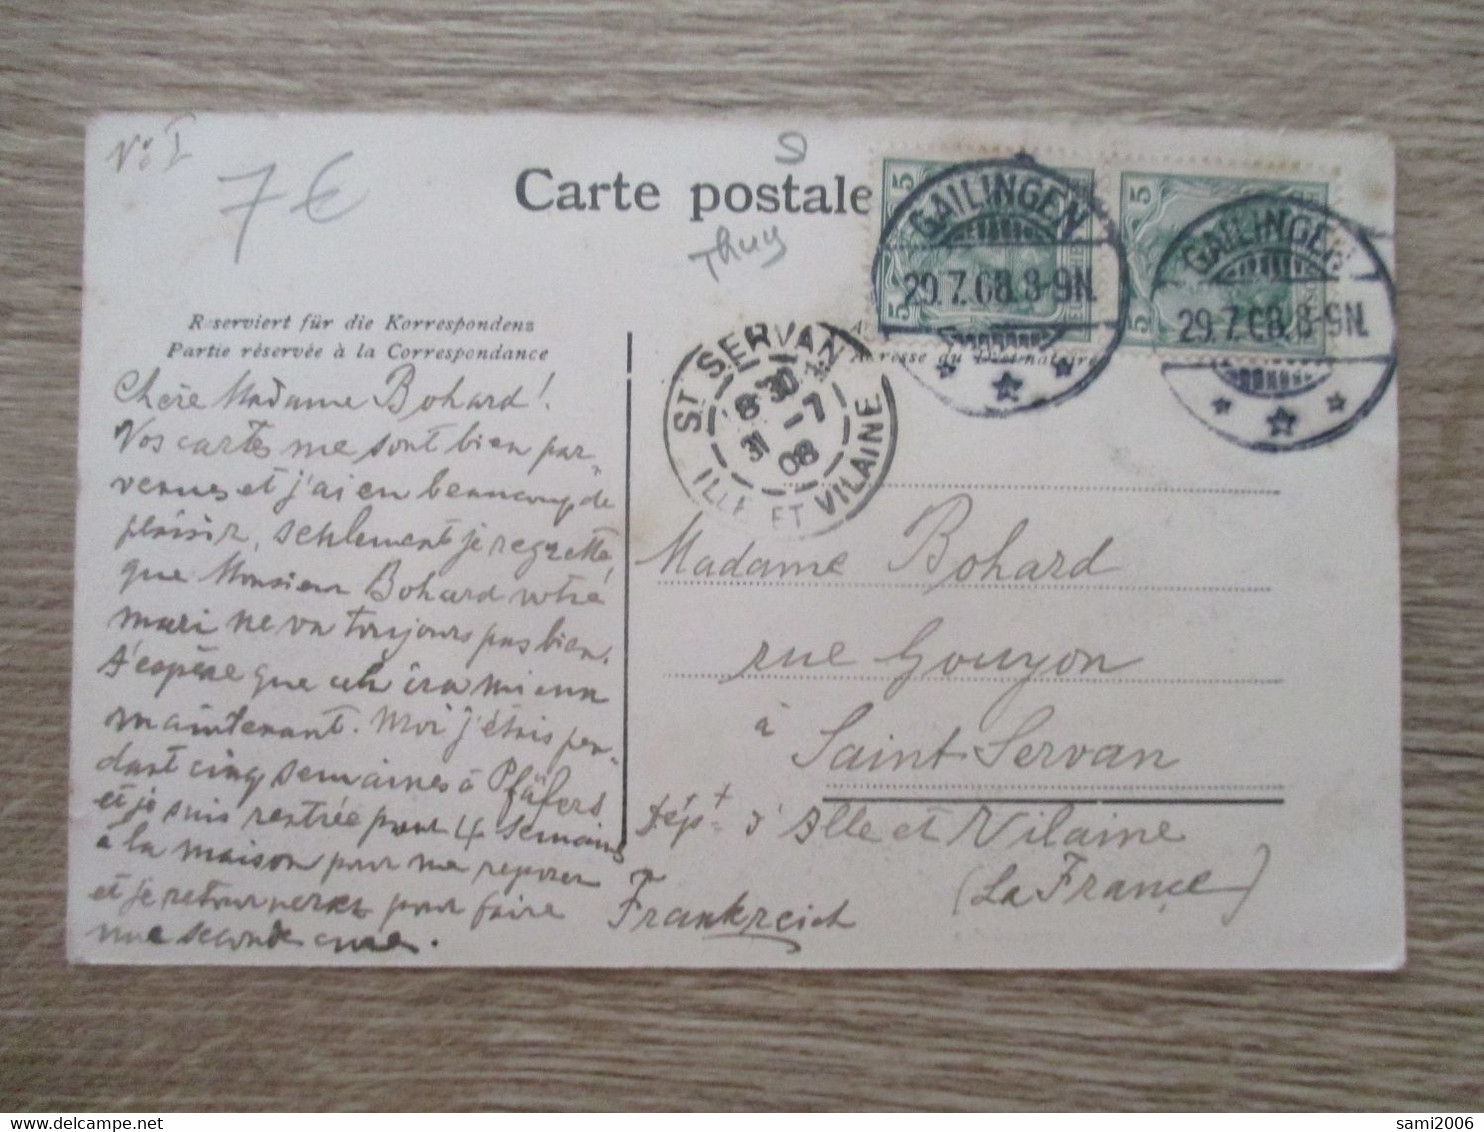 No I
7€
Carte postale
Thuy
5
5
5
5
GAILINGEN
29.7.08.8-9N.
GAILINGEN
29.7.08.8-9N.
Reserviert für die Korrespondenz
Partie réservée à la Correspondance
Adresse du Destinataire
ST SERVAN
8 30
31 -7
08
ILLE ET VILAINE
Chère Madame Bohard!
Vos cartes me sont bien par-
venues et j'ai eu beaucoup de
plaisir, seulement je regrette,
que Monsieur Bohard votre
mari ne va toujours pas bien.
J'espère que cela ira mieux
maintenant. Moi j'étais pen-
dant cinq semaines à Pfäfers
et je suis rentrée pour 4 semains
à la maison pour me reposer
et je retournerai pour faire
une seconde cure.
Madame Bohard
rue Gouyon
à Saint-Servan
dépt d'Ille et Vilaine
(La France)
Frankreich
sami2006